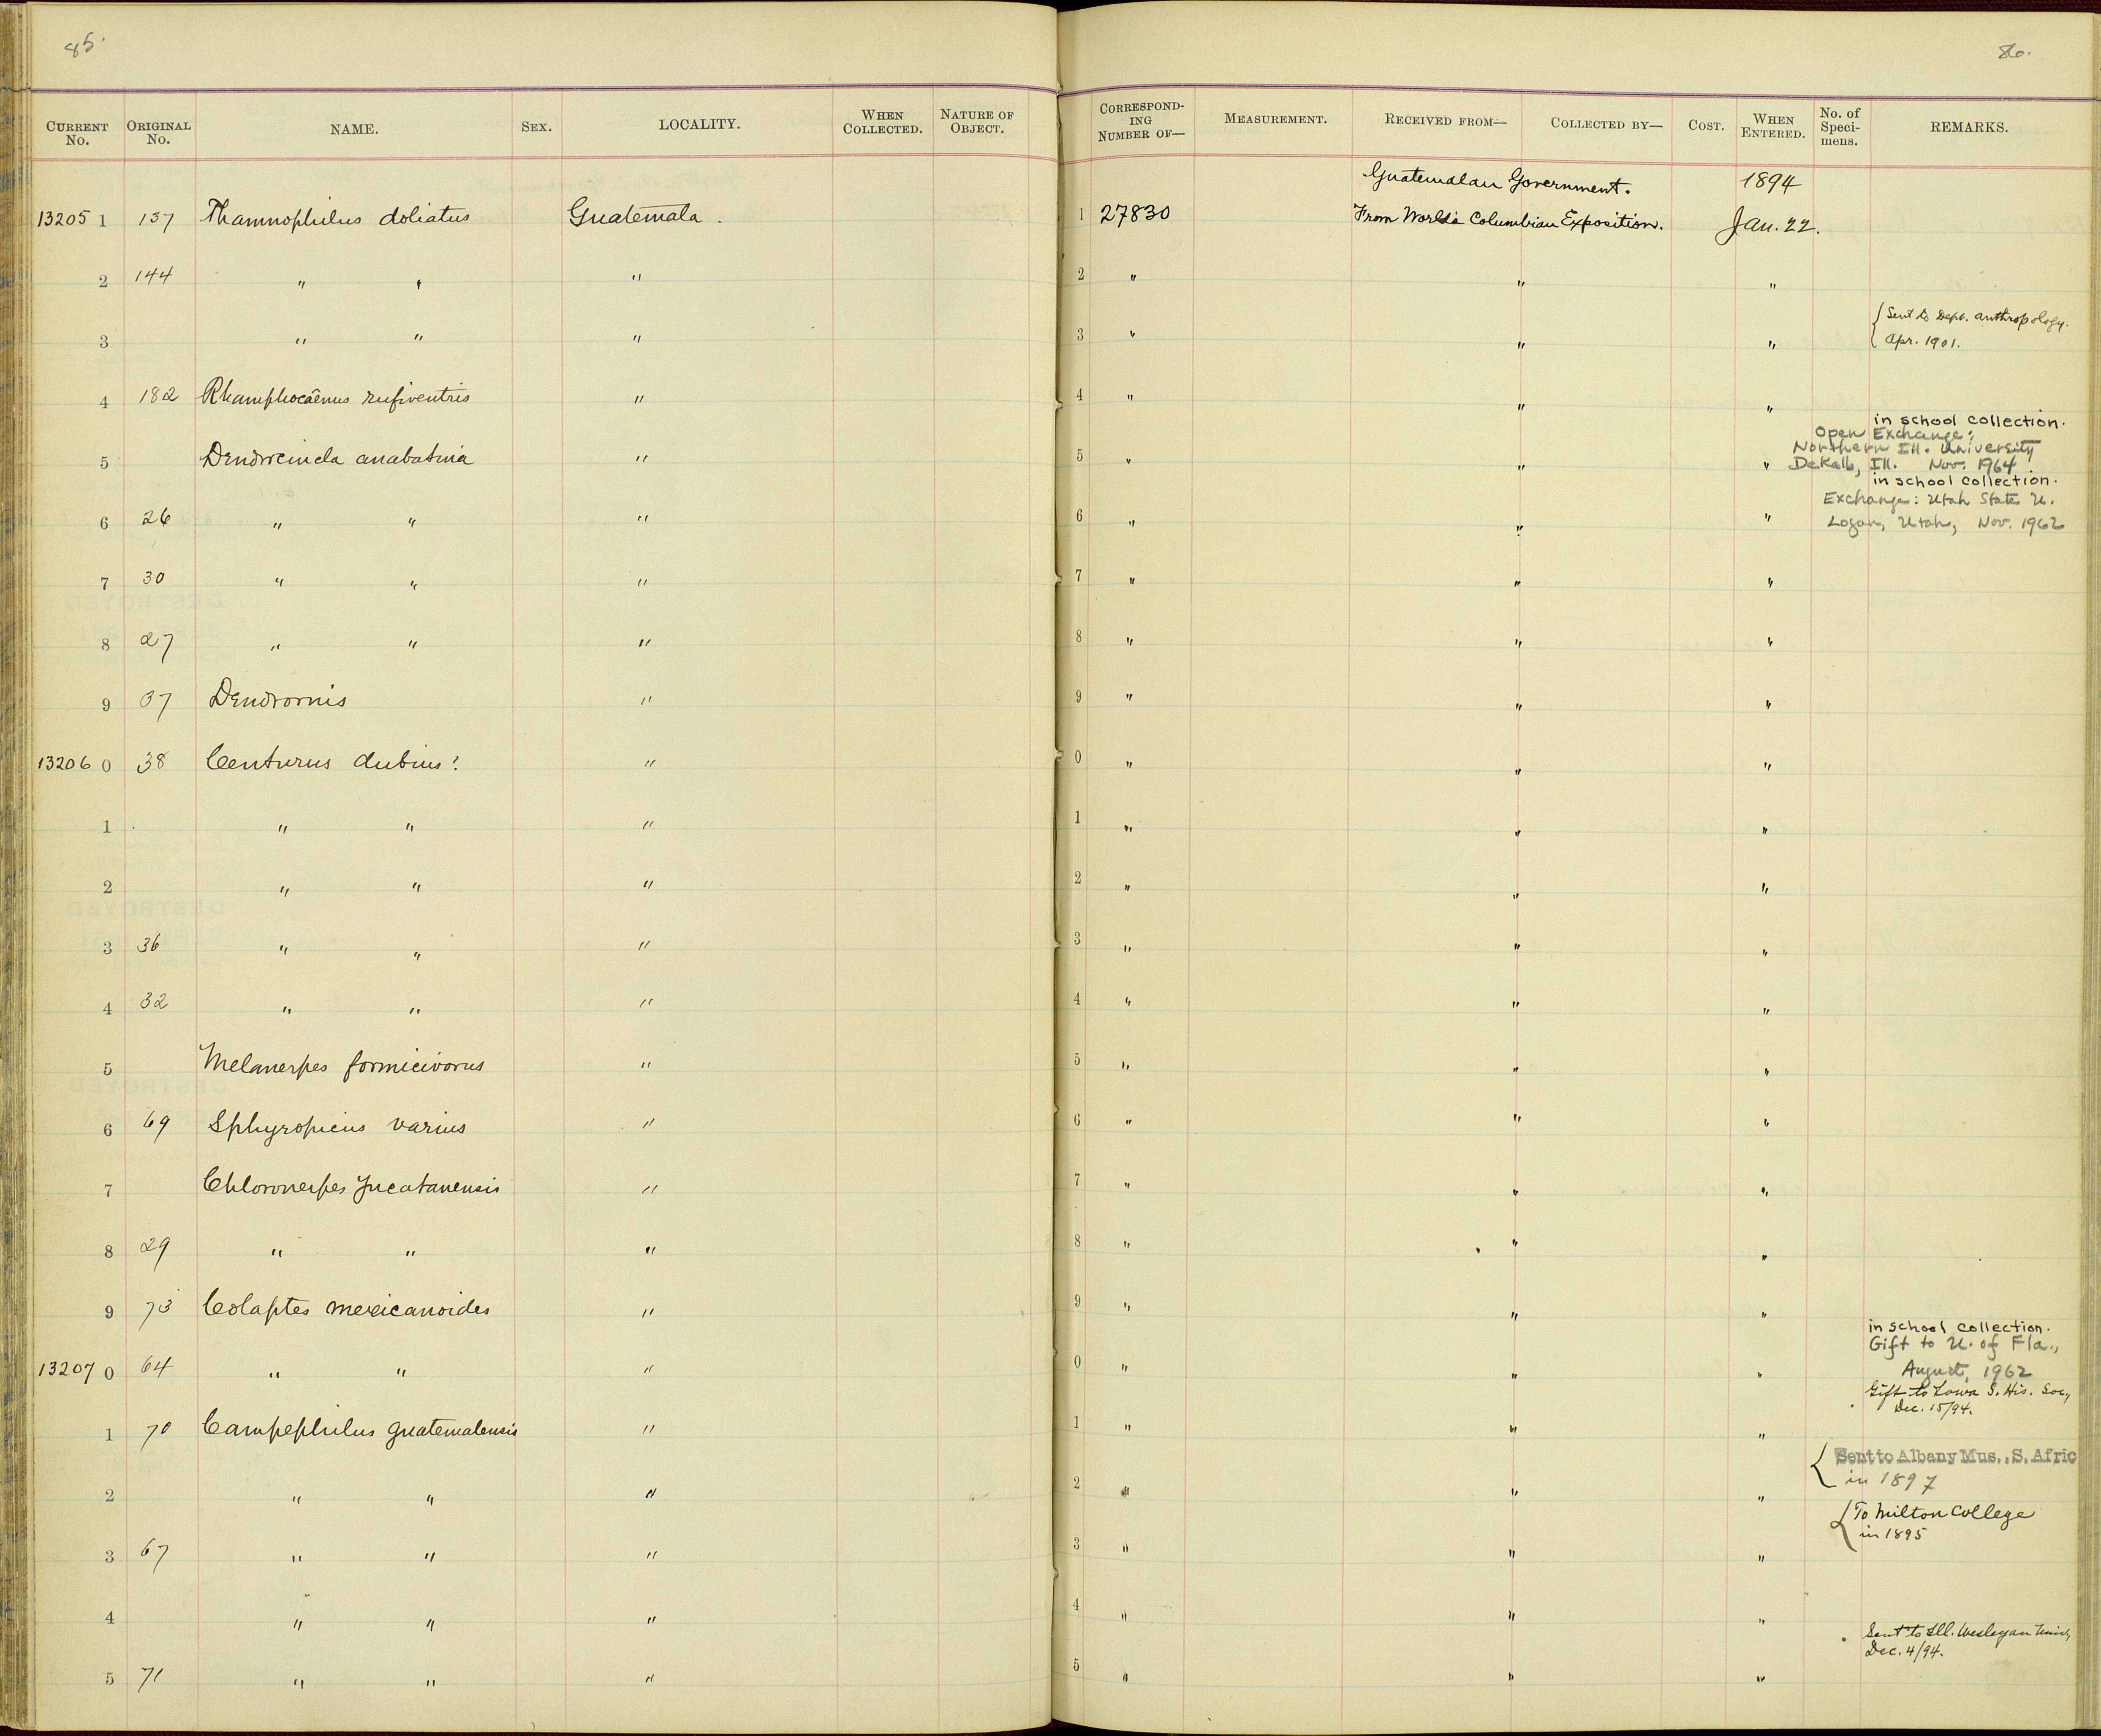 85.
86.
CURRENT No. ORIGINAL No. NAME. SEX. LOCALITY. WHEN COLLECTED. NATURE OF OBJECT. CORRESPONDING NUMBER OF— MEASUREMENT. RECEIVED FROM— COLLECTED BY— COST. WHEN ENTERED. No. of Specimens. REMARKS.
Guatemalan Government. 1894
13205 1 137 Thamnophilus doliatus Guatemala. 1 27830 From World's Columbian Exposition. Jan. 22.
2 144 " " " 2 " " "
3 " " " 3 " " " Sent to Dept. Anthropology.
Apr. 1901.
4 182 Rhamphocaenus rufiventris " 4 " " "
in school collection.
Open Exchange:
Northern Ill. University
5 Dendrocincla anabatina " 5 " " " DeKalb, Ill. Nov. 1964
in school collection.
Exchange: Utah State U.
6 26 " " " 6 " " " Logan, Utah, Nov. 1962
7 30 " " " 7 " " "
8 27 " " " 8 " " "
9 37 Dendrornis " 9 " " "
13206 0 38 Centurus dubius? " 0 " " "
1 " " " 1 " " "
2 " " " 2 " " "
3 36 " " " 3 " " "
4 32 " " " 4 " " "
5 Melanerpes formicivorus " 5 " " "
6 69 Sphyropicus varius " 6 " " "
7 Chloronerpes yucatanensis " 7 " " "
8 29 " " " 8 " " "
9 73 Colaptes mexicanoides " 9 " " "
in school collection.
Gift to U. of Fla.,
13207 0 64 " " " 0 " " " August, 1962
Gift to Iowa S. His. Soc.,
Dec. 15/94.
1 70 Campephilus guatemalensis " 1 " " "
Sent to Albany Mus., S. Afric
2 " " " 2 " " " in 1897
To Milton College
in 1895
3 67 " " " 3 " " "
4 " " " 4 " " "
Sent to Ill. Wesleyan Univ,
Dec. 4/94.
5 71 " " " 5 " " "